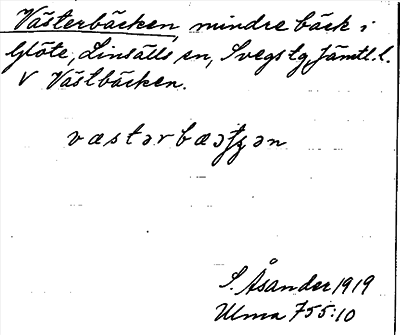 Västerbäcken, mindre bäck i
Glöte, Linsälls sn, Svegs tg, Jämtl. l.
V Västbäcken.
S. Åsander 1919
Ulma 755:10